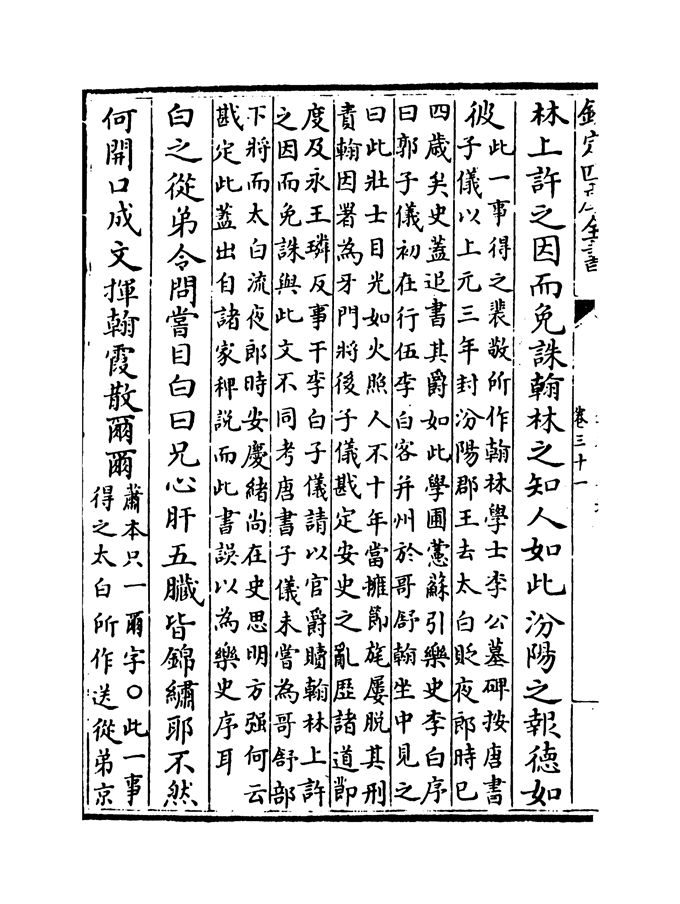 欽定四庫全書
卷三十一
林上許之因而免誅翰林之知人如此汾陽之報德如
彼此一事得之裴敬所作翰林學士李公墓碑按唐書
子儀以上元三年封汾陽郡王去太白貶夜郎時已
四歲矣史蓋追書其爵如此學圃蕙蘇引樂史李白序
曰郭子儀初在行伍李白客并州於哥舒翰坐中見之
曰此壯士目光如火照人不十年當擁節旄屢脫其刑
責翰因署為牙門將後子儀戡定安史之亂歷諸道節
度及永王璘反事干李白子儀請以官爵贖翰林上許
之因而免誅與此文不同考唐書子儀未嘗為哥舒部
下將而太白流夜郎時安慶緒尚在史思明方强何云
戡定此蓋出自諸家稗說而此書誤以為樂史序耳
白之從弟令問嘗目白曰兄心肝五臟皆錦繡耶不然
何開口成文揮翰霞散爾爾蕭本只一爾字○此一事
得之太白所作送從弟京